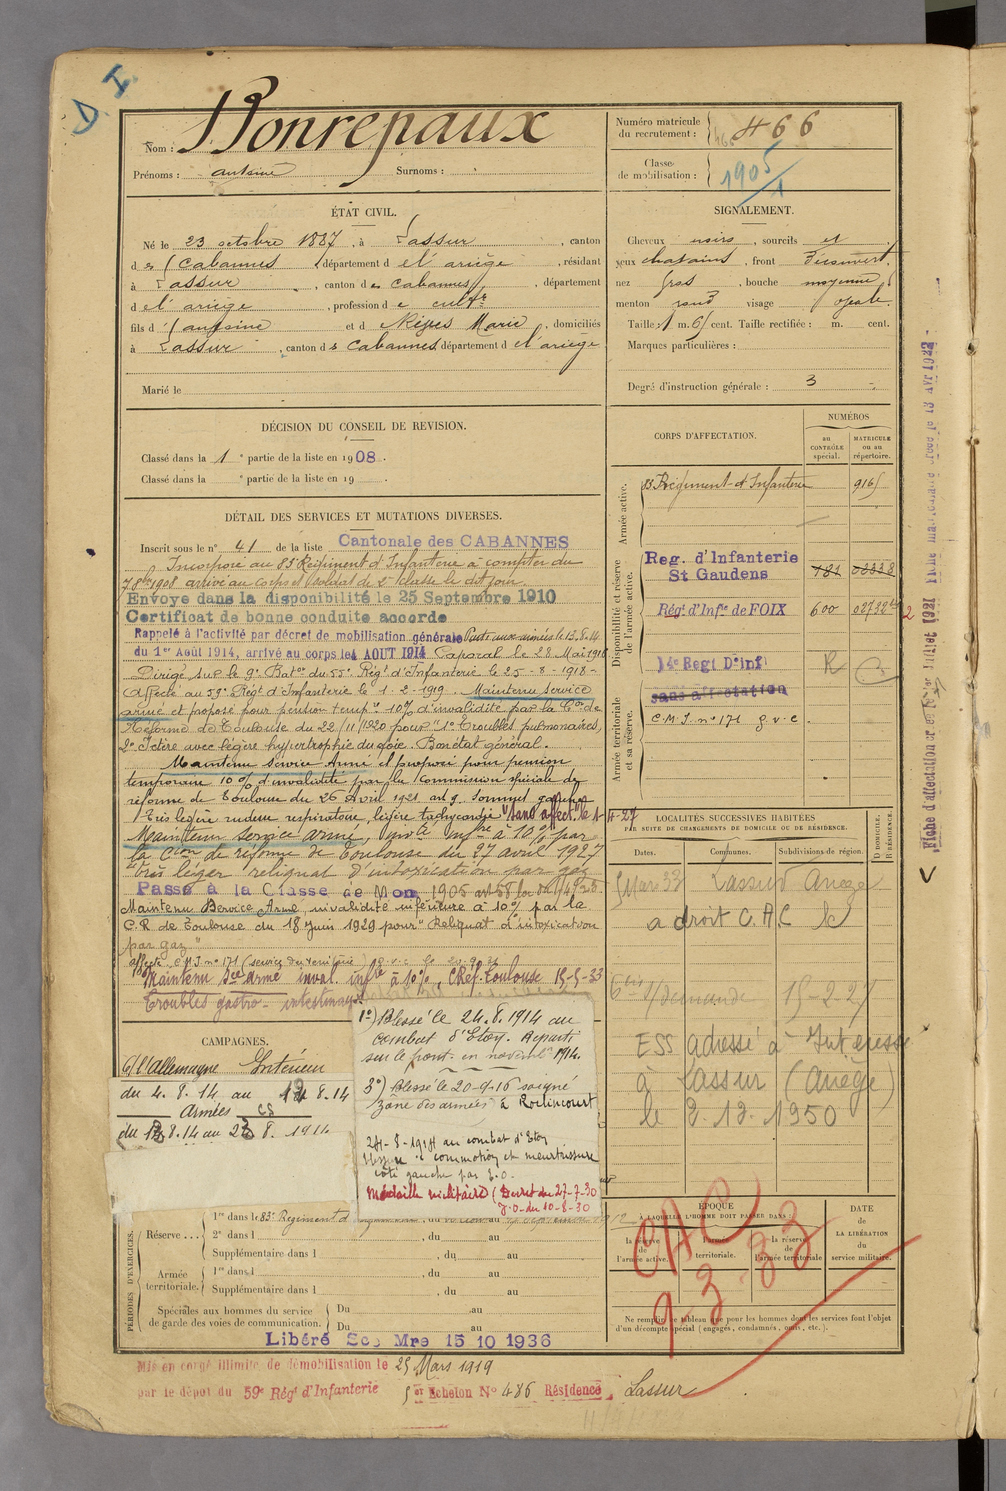 D. I.
Nom : Bonrepaux
Prénoms : antoine Surnoms :
Numéro matricule du recrutement : 466
Classe de mobilisation : 1905
ÉTAT CIVIL.
Né le 23 octobre 1887, à Lassur, canton
des Cabannes, département de l'ariège, résidant
à Lassur, canton des Cabannes, département
de l'ariège, profession de cultr
fils d'antoine et d Marie, domiciliés
à Lassur, canton des Cabannes département de l'ariege
Marié le
SIGNALEMENT.
Cheveux noirs, sourcils et
yeux chatains, front Découvert
nez gros, bouche moyenne
menton rond visage ovale.
Taille : 1 m. 61 cent. Taille rectifiée : m. cent.
Marques particulières :
Degré d'instruction générale : 3
DÉCISION DU CONSEIL DE REVISION.
Classé dans la 1e partie de la liste en 1908.
Classé dans la e partie de la liste en 19 .
DÉTAIL DES SERVICES ET MUTATIONS DIVERSES.
Inscrit sous le n° 41 de la liste Cantonale des CABANNES
Incorporé au 83e Régiment d'Infanterie à compter du
7 8bre 1908 arrivé au corps et soldat de 2e classe le dit jour.
Envoyé dans la disponibilité le 25 Septembre 1910
Certificat de bonne conduite accordé
Rappelé à l'activité par décret de mobilisation générale Parti aux armées le 13.8.14
du 1er Août 1914, arrivé au corps le 4 AOUT 1914 Caporal le 28 Mai 1916
Dirigé sur le 9e Baton du 55e Régt d'Infanterie le 25-8-1918-
Affecté au 59e Régt d'Infanterie le 1-2-1919. Maintenu service
armé et proposé pour pension temp. 10% d'invalidité par la Con de
Réforme de Toulouse du 22/11/1920 pour "1° Troubles pulmonaires,
2° Ictère avec légère hypertrophie du foie. Bon état général.
Maintenu service Armé et proposé pour pension
temporaire 10% d'invalidité par la Commission spéciale de
réforme de Toulouse du 26 Avril 1921
Très légère rudesse respiratoire, légère tachycardie "sans affect. le 1-4-27
Maintenu service armé, à 10% par
la Con de réforme de Toulouse du 27 avril 1927
"très léger reliquat d'intoxication par gaz
Passé à la Classe de Mon 1905 art 58
Maintenu Service Armé, invalidité inférieure à 10% par la
C.R. de Toulouse du 18 juin 1929 pour "Reliquat d'intoxication
par gaz"
affecté C.M.I. n° 171 g.v.c.
Maintenu Sce armé inval. infre à 10%, CRéf. Toulouse 15-5-33
Troubles gastro-intestinaux
CORPS D'AFFECTATION.
NUMÉROS
au CONTRÔLE spécial.
MATRICULE ou au répertoire.
Armée active.
83 Régiment d'Infanterie 9165
Disponibilité et réserve de l'armée active.
Reg. d'Infanterie St Gaudens 781
Régt d'Infie de FOIX 600 02732
14e Regt D'inf R
sans affectation
Armée territoriale et sa réserve.
C.M.I. n° 171 g.v.c.
LOCALITÉS SUCCESSIVES HABITÉES
PAR SUITE DE CHANGEMENTS DE DOMICILE OU DE RÉSIDENCE.
Dates. Communes. Subdivisions de région. D DOMICILE. R RÉSIDENCE.
5 Mars 33 Lassur Ariège
a droit C.A.C le
15-2-27
ESS adressé à Intéressé
à Lassur (Ariège)
le 2.12.1950
CAMPAGNES.
C/ l'allemagne Intérieur
du 4.8.14 au 12 8.14
Armées
du 13 8.14 au 23 8. 1914
1°) Blessé le 24.8.1914 au
combat d'Etoy. Reparti
sur le front en novembre 1914.
3°) Blessé le 20-9-16 soigné
(zône des armées) à Roclincourt
24-8-1914 au combat d'Etoy
commotion et meurtrissure
côté gauche par
Médaille militaire (Decret du 27-7-30
J.O. du 10-8-30
PÉRIODES D'EXERCICES.
Réserve . . .
1re dans le 83e Régiment d
2e dans l , du au
Supplémentaire dans l , du au
Armée territoriale.
1re dans l , du au
Supplémentaire dans l , du au
Spéciales aux hommes du service de garde des voies de communication.
Du au
Du au
Libéré Ser Mre 15 10 1936
ÉPOQUE
À LAQUELLE L'HOMME DOIT PASSER DANS :
la réserve de l'armée active.
l'armée territoriale.
la réserve de l'armée territoriale
DATE DE LA LIBÉRATION du service militaire.
CAC
9-3-33
Ne remplir ce tableau que pour les hommes dont les services font l'objet
d'un décompte spécial (engagés, condamnés, omis, etc.).
Mis en congé illimité de démobilisation le 25 Mars 1919
par le dépôt du 59e Régt d'Infanterie 5er Echelon N° 486 Résidence Lassur